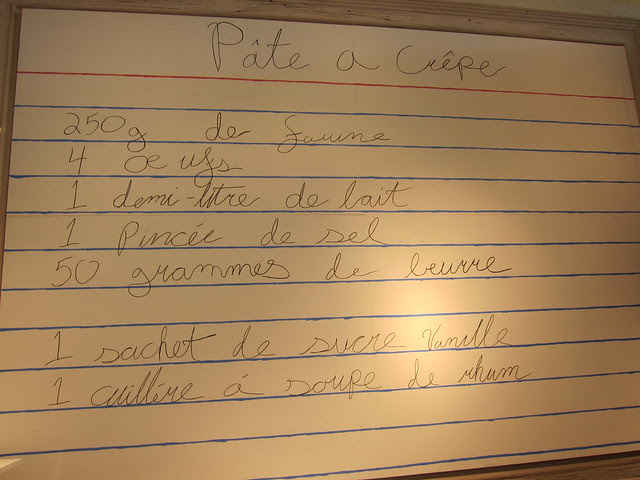 Pâte a Crêpe
250g de farine
4 oeufs
1 demi-litre de lait
1 Pincée de sel
50 grammes de beurre
1 sachet de sucre Vanille
1 cuillère á soupe de rhum